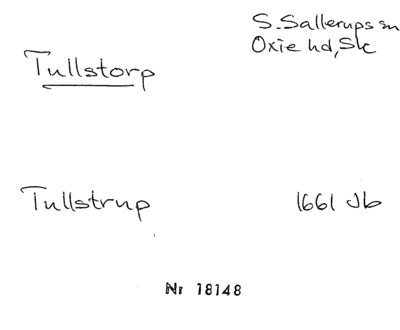 S. Sallerups sn
Oxie hd, Sk
Tullstorp
Tullstrup 1661 Jb
Nr 18148